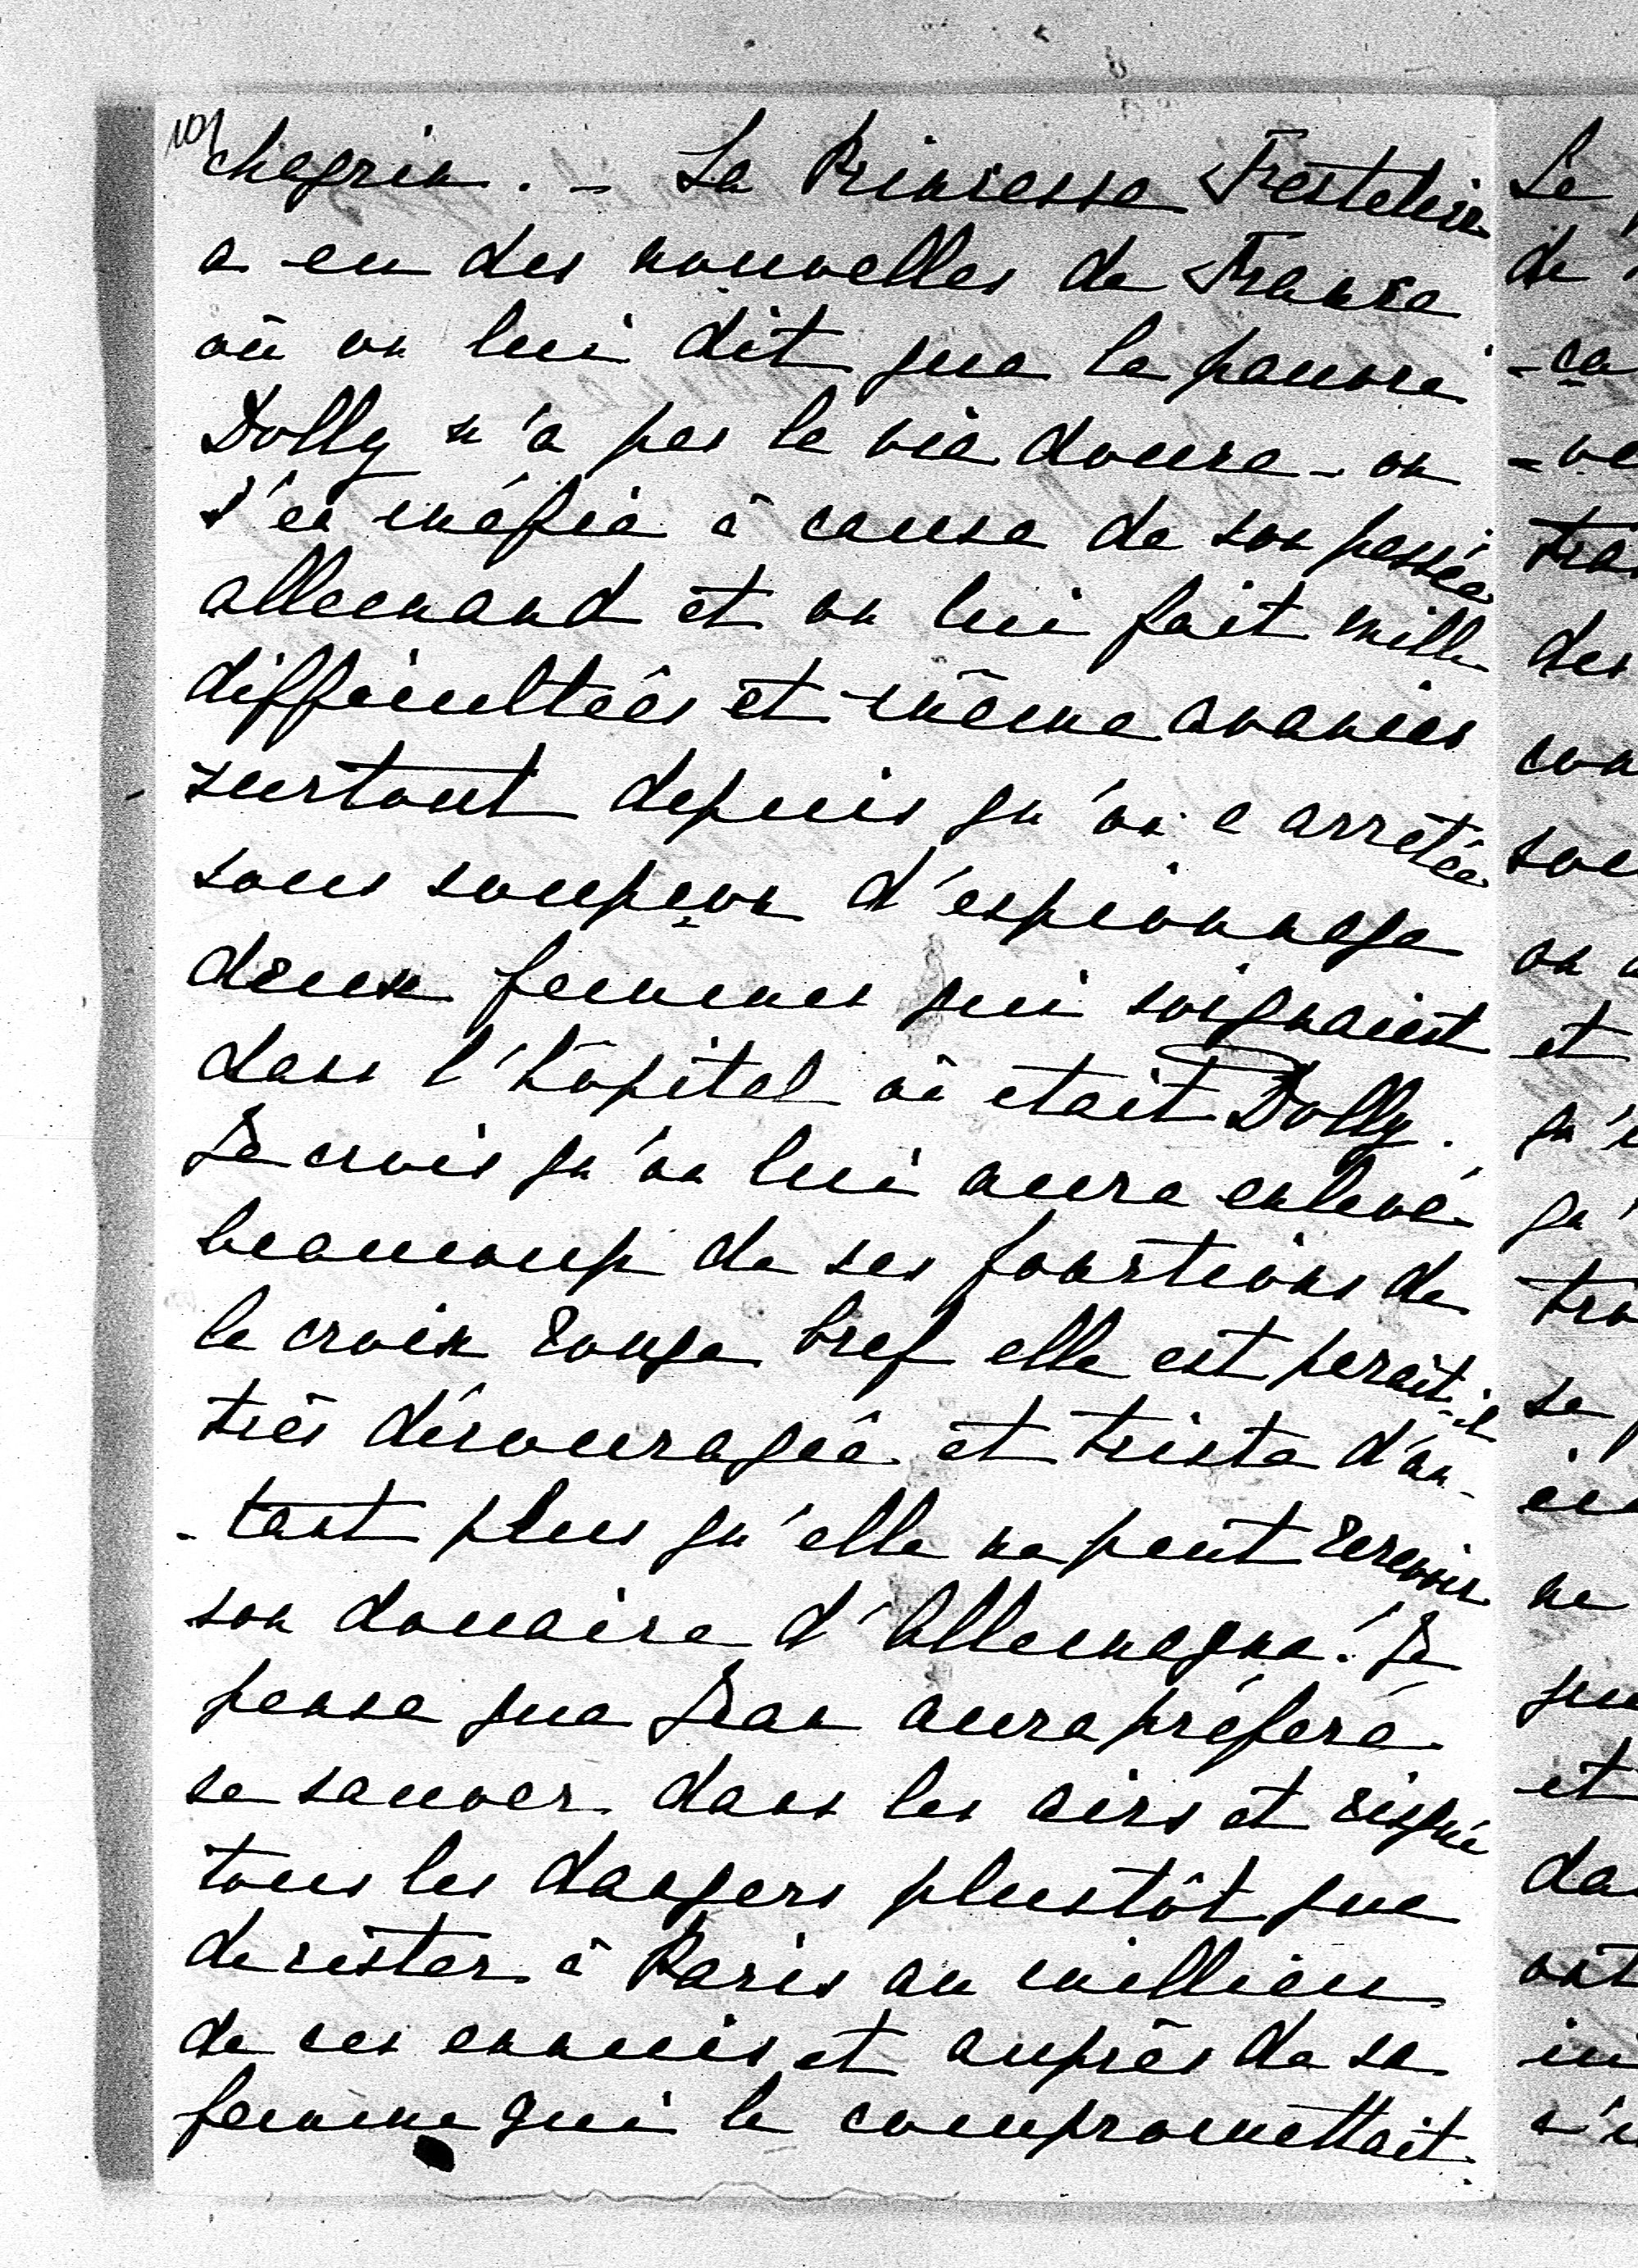 101
chagrin. - La Princesse Festetisz
a eu des nouvelles de France
où on lui dit que la pauvre
Dolly n'a pas la vie douce - on
s'en méfie à cause de son passée
allemand et on lui fait mille
difficultées et même avanies
surtout depuis qu'on a arretée
sous soupçon d'espionnage
deux femmes qui soignaient
dans l'hôpital où etait Dolly.
Je crois qu'on lui aura enlevé
beaucoup de ses fonctions de
la croix rouge bref elle est parait-il
très découragée et triste d'au-
-tant plus qu'elle ne peut recevoir
son douaire d'Allemagne. Je
pense que Jean aura préferé
se sauver dans les airs et risqué
tous les dangers plustôt que
de rester à Paris au millieu
de ces ennuis et auprès de sa
femme qui le compromettait.
Le
de
-ça
-ve
des
et
qu'
se
ne
et